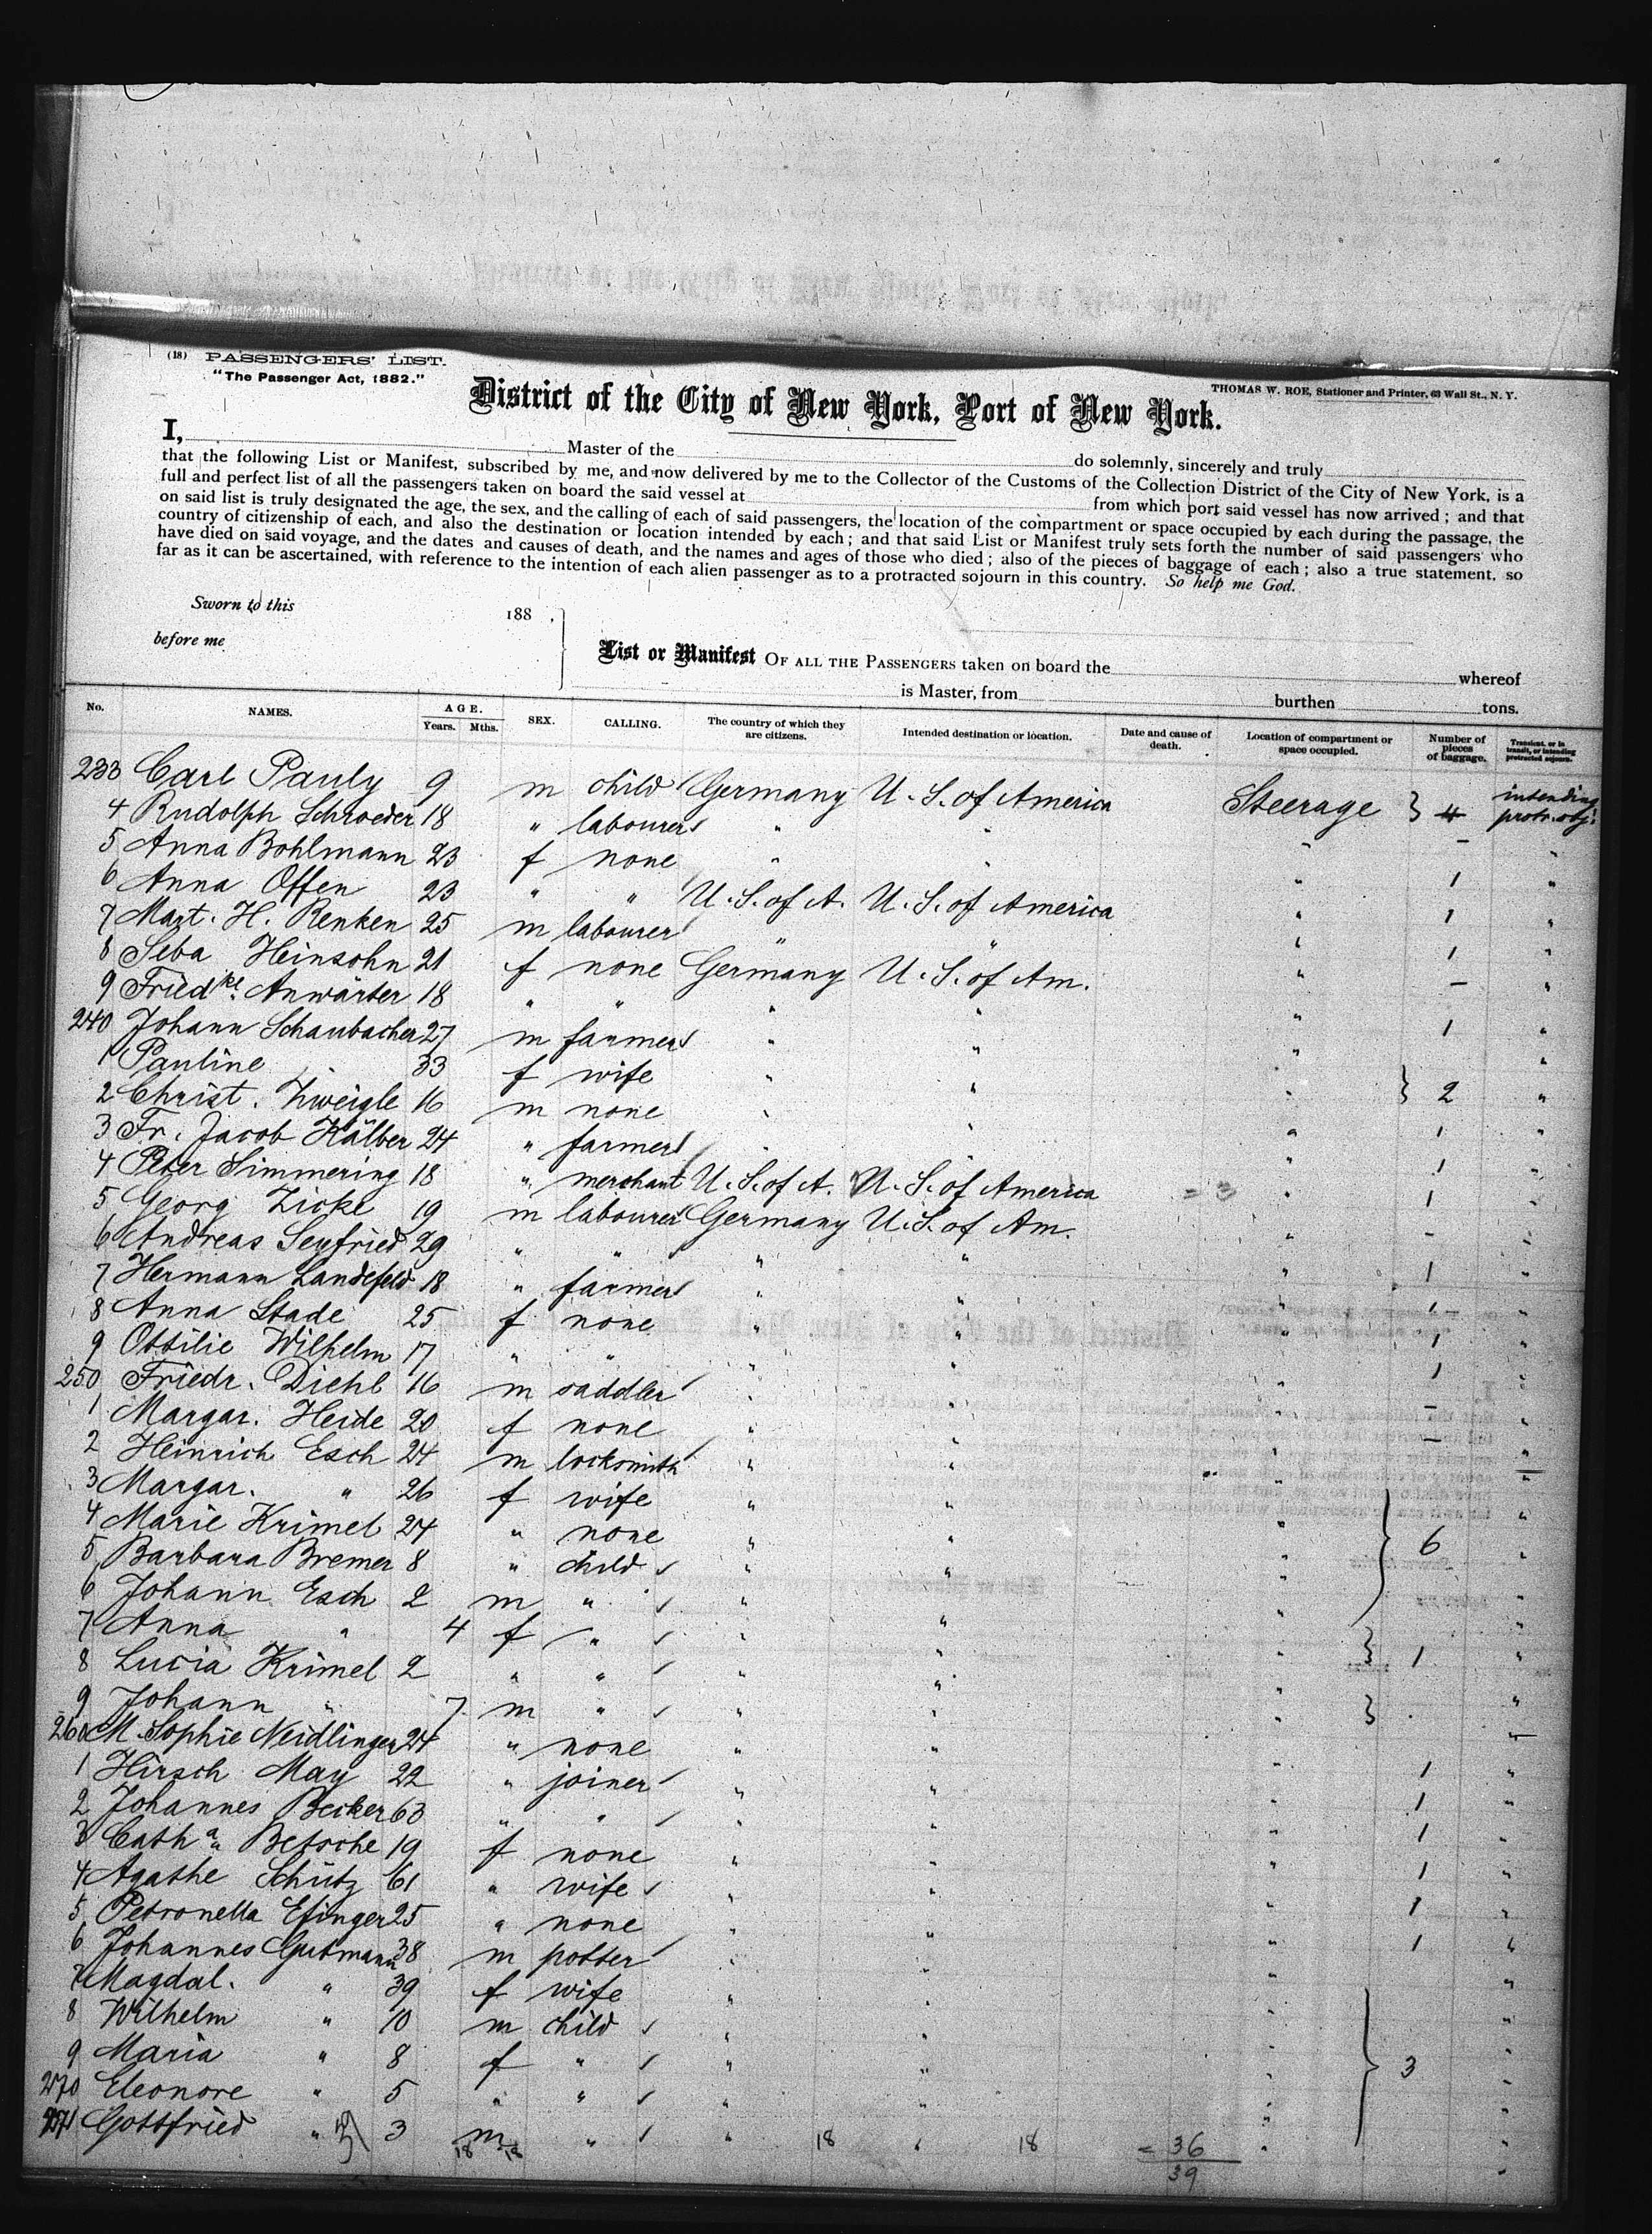 (18) PASSENGERS' LIST.
"The Passenger Act, 1882."
THOMAS W. ROE, Stationer and Printer, 63 Wall St., N. Y.
District of the City of New York, Port of New York.
I, Master of the do solemnly, sincerely and truly
that the following List or Manifest, subscribed by me, and now delivered by me to the Collector of the Customs of the Collection District of the City of New York, is a
full and perfect list of all the passengers taken on board the said vessel at from which port said vessel has now arrived; and that
on said list is truly designated the age, the sex, and the calling of each of said passengers, the location of the compartment or space occupied by each during the passage, the
country of citizenship of each, and also the destination or location intended by each; and that said List or Manifest truly sets forth the number of said passengers who
have died on said voyage, and the dates and causes of death, and the names and ages of those who died; also of the pieces of baggage of each; also a true statement, so
far as it can be ascertained, with reference to the intention of each alien passenger as to a protracted sojourn in this country. So help me God.
Sworn to this 188 ,
before me
List or Manifest OF ALL THE PASSENGERS taken on board the whereof
is Master, from burthen tons.
No. NAMES. AGE. Years. Mths. SEX. CALLING. The country of which they are citizens. Intended destination or location. Date and cause of death. Location of compartment or space occupied. Number of pieces of baggage. Transient, or in transit, or intending protracted sojourn.
233 Carl Pauly 9 m child Germany U. S. of America Steerage } 4 intending protr. obj:
4 Rudolph Schroeder 18 " labourer " " " – "
5 Anna Bohlmann 23 f none " " " 1 "
6 Anna Offen 23 " " U. S. of A. U. S. of America " 1 "
7 Mart. H. Renken 25 m labourer " " " 1 "
8 Seba Heinsohn 21 f none Germany U. S. of Am. " – "
9 Friedke. Anwärter 18 " " " " " 1 "
240 Johann Schaubacher 27 m farmer " " " "
1 Pauline " 33 f wife " " " } 2 "
2 Christ. Zweigle 16 m none " " " 1 "
3 Fr. Jacob Kälber 24 " farmer " " " 1 "
4 Peter Simmering 18 " merchant U. S. of A. U. S. of America = 3 " 1 "
5 Georg Zicke 19 m labourer Germany U. S. of Am. " – "
6 Andreas Seyfried 29 " " " " " 1 "
7 Hermann Landefeld 18 " farmer " " " 1 "
8 Anna Stade 25 f none " " " 1 "
9 Ottilie Wilhelm 17 " " " " " 1 "
250 Friedr. Diehl 16 m saddler " " " – "
1 Margar. Heide 20 f none " " " – "
2 Heinrich Esch 24 m locksmith " " " "
3 Margar. " 26 f wife " " " "
4 Marie Krimel 24 " none " " " } 6 "
5 Barbara Bremer 8 " child " " " "
6 Johann Esch 2 m " " " " "
7 Anna " 4 f " " " " } 1 "
8 Lucia Krimel 2 " " " " " "
9 Johann " 7 m " " " " }
260 M. Sophie Neidlinger 24 " none " " " 1 "
1 Hirsch May 22 " joiner " " " 1 "
2 Johannes Becker 63 " " " " " 1 "
3 Catha. Betsche 19 f none " " " 1 "
4 Agathe Schütz 61 " wife " " " 1 "
5 Petronella Efinger 25 " none " " " 1 "
6 Johannes Gutmann 38 m potter " " " "
7 Magdal. " 39 f wife " " " "
8 Wilhelm " 10 m child " " " "
9 Maria " 8 f " " " " } 3 "
270 Eleonore " 5 " " " " " "
271 Gottfried " 3 m " " " " "
18 18 18 18 = 36
39